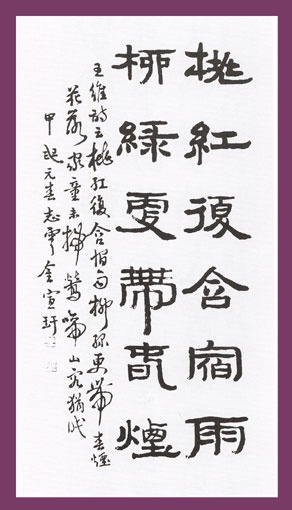 桃紅復含宿雨
柳綠更帶春煙
王維詩云桃紅復含宿雨柳綠更帶春煙
花落家童未掃鶯啼山客猶眠
甲元春志金宣